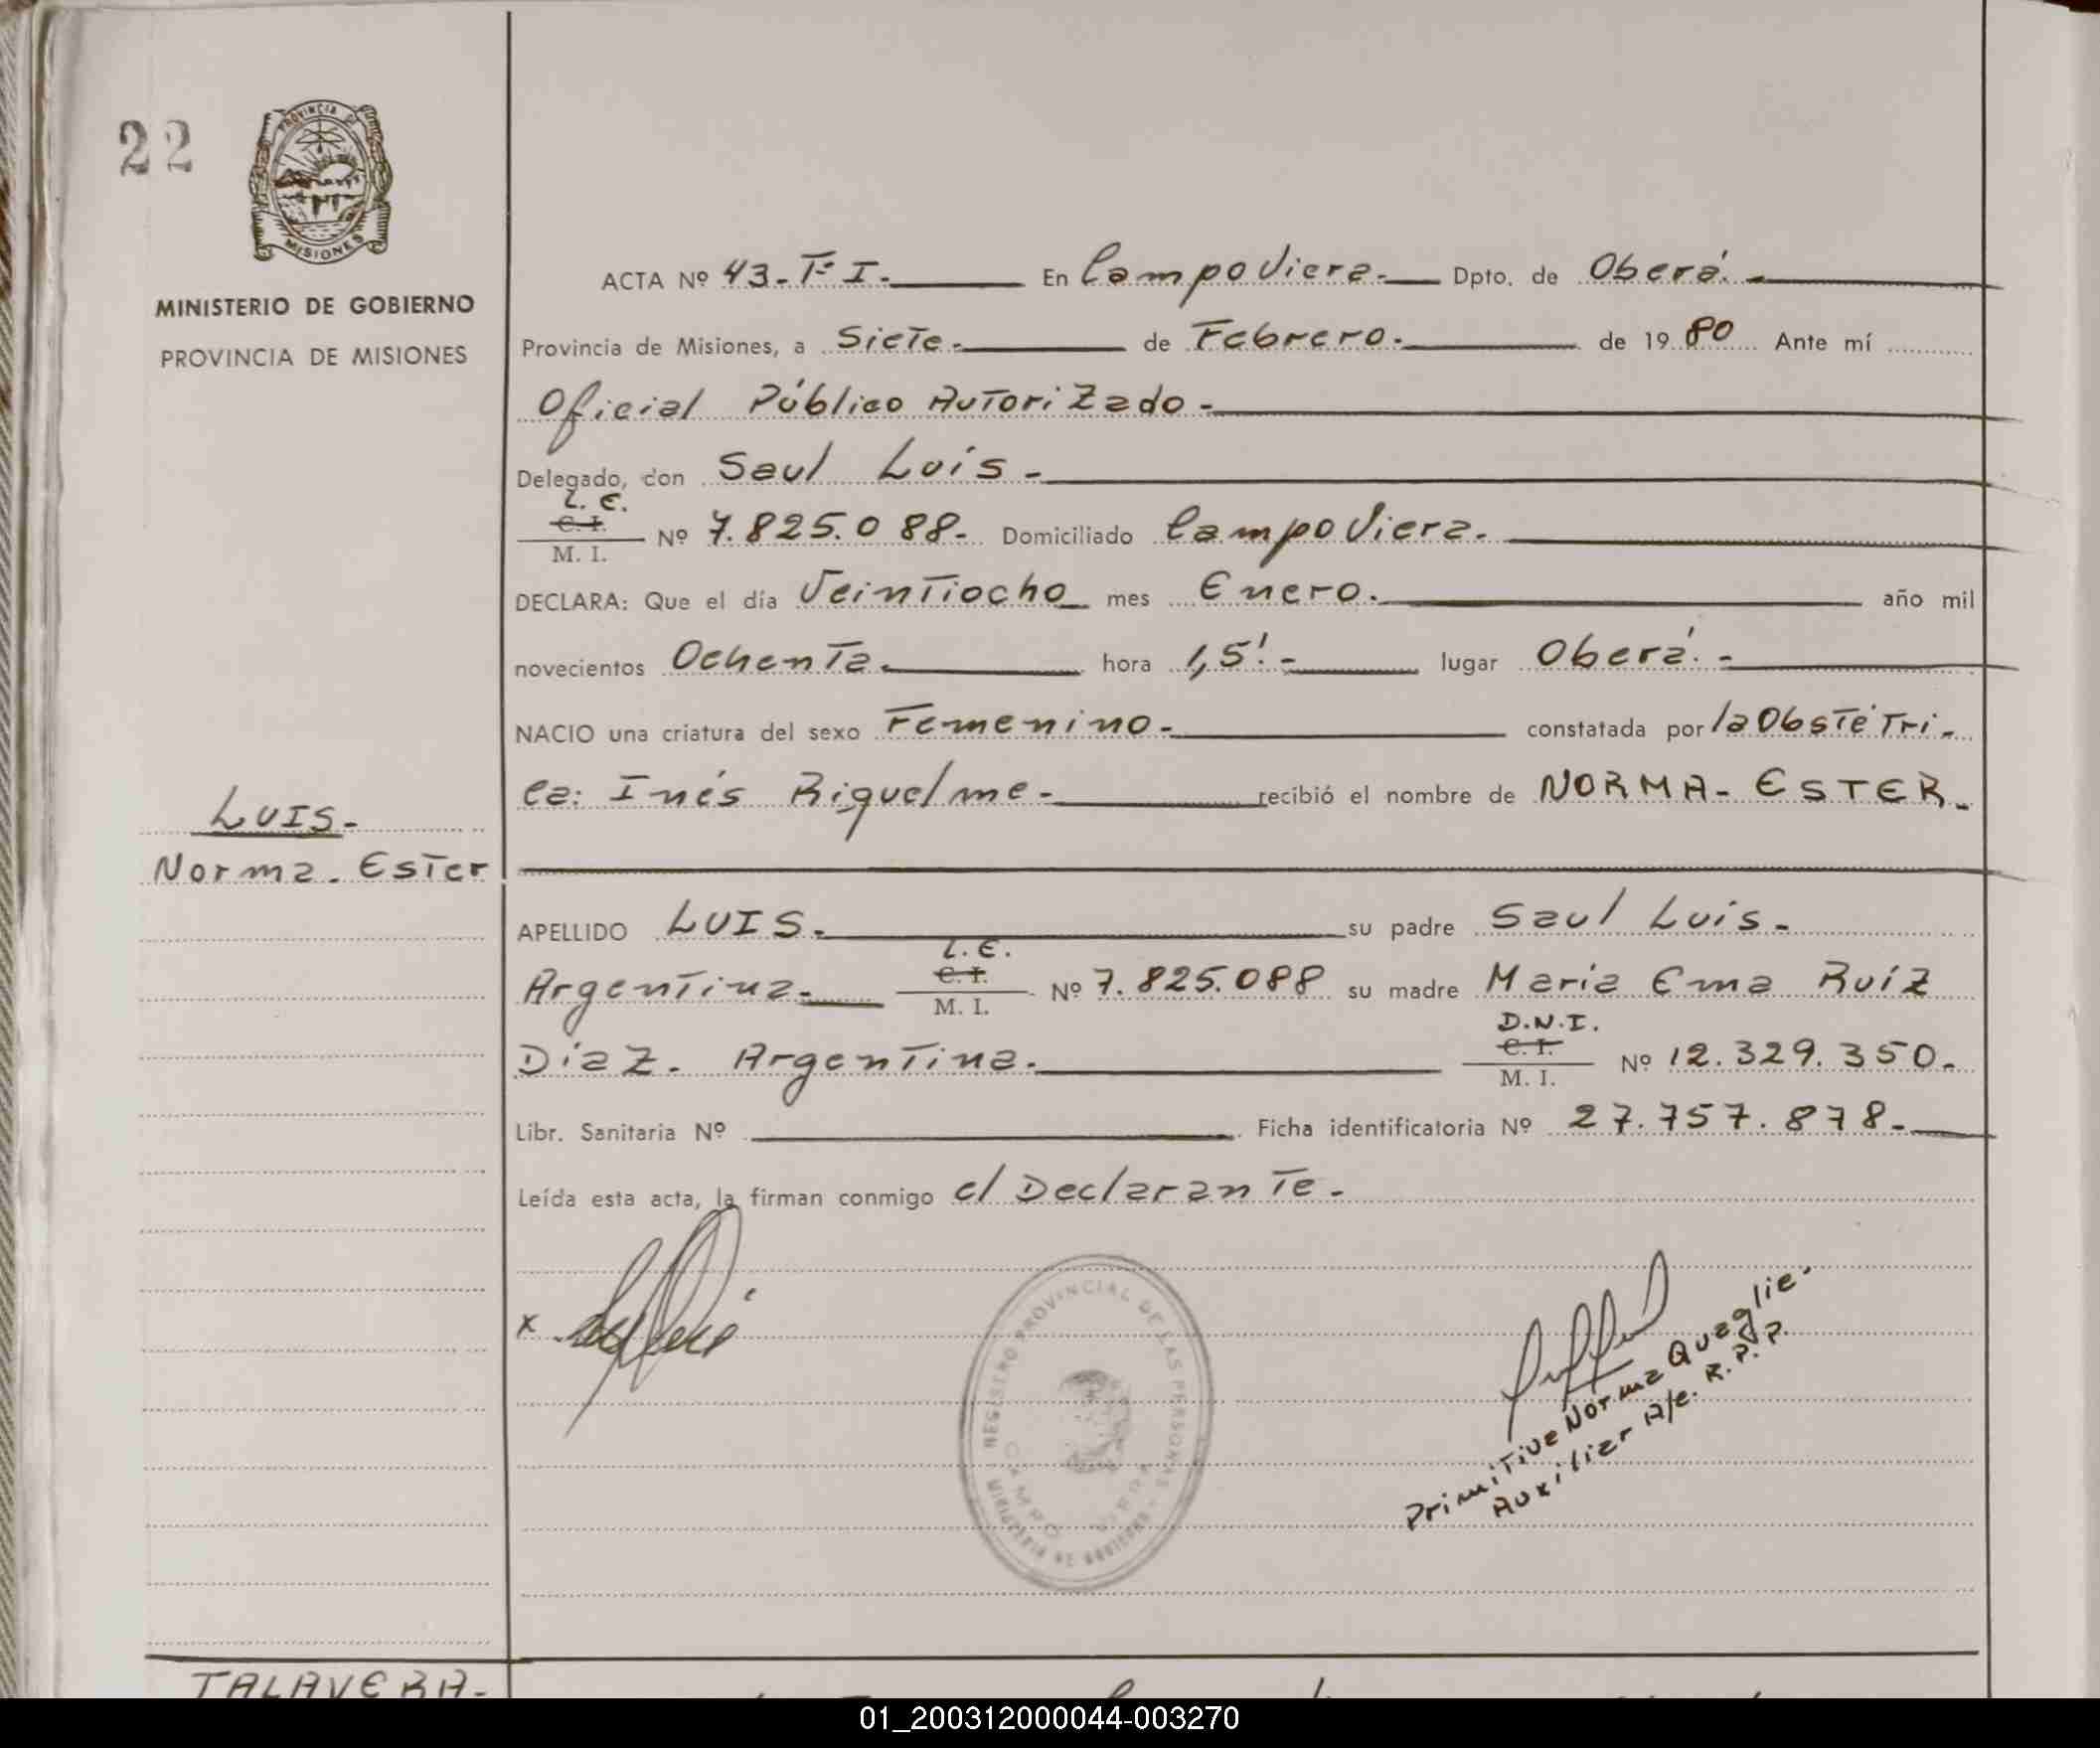 22
PROVINCIA DE
MISIONES
MINISTERIO DE GOBIERNO
PROVINCIA DE MISIONES
ACTA Nº 43-Tº I.- En Campo Viera.- Dpto. de Oberá.-
Provincia de Misiones, a Siete.- de Febrero.- de 1980 Ante mí
Oficial Público Autorizado.-
Delegado, don Saul Luis.-
L. E.
C. I.
M. I.
Nº 7.825.088.- Domiciliado Campo Viera.-
DECLARA: Que el día Veintiocho mes Enero.- año mil
novecientos Ochenta.- hora 1,5'.- lugar Oberá.-
NACIO una criatura del sexo Femenino.- constatada por la Obstétri-
ca: Inés Riquelme.- recibió el nombre de NORMA-ESTER.-
LUIS.-
Norma-Ester
APELLIDO LUIS.- su padre Saul Luis.-
L. E.
C. I.
M. I.
Argentina.- Nº 7.825.088 su madre Maria Ema Ruíz
D.N.I.
C. I.
M. I.
Díaz. Argentina.- Nº 12.329.350.-
Libr. Sanitaria Nº Ficha identificatoria Nº 27.757.878.-
Leída esta acta, la firman conmigo el Declarante.-
x
REGISTRO PROVINCIAL DE LAS PERSONAS
MINISTERIO DE GOBIERNO
CAMPO VIERA
Primitiva Norma Quaglia.
Auxiliar A/c. R.P.P.
TALAVERA.-
01_200312000044-003270